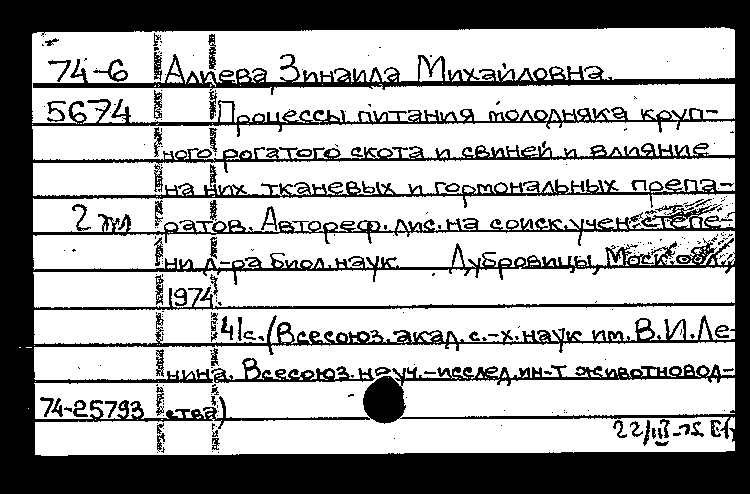 74-6 Алиева, Зинаида Михайловна.
5674 Процессы питания молодняка круп-
ного рогатого скота и свиней и влияние
на них тканевых и гормональных препа-
2 ратов. Автореф. дис. на соиск. учен. степе-
ни д-ра биол. наук. Дубровицы, Моск. обл.,
1974.
41с. (Всесоюз. акад. с.-х. наук им. В.И. Ле-
нина. Всесоюз. науч.-исслед. ин-т животновод-
74-25793 ства)
22/III-75